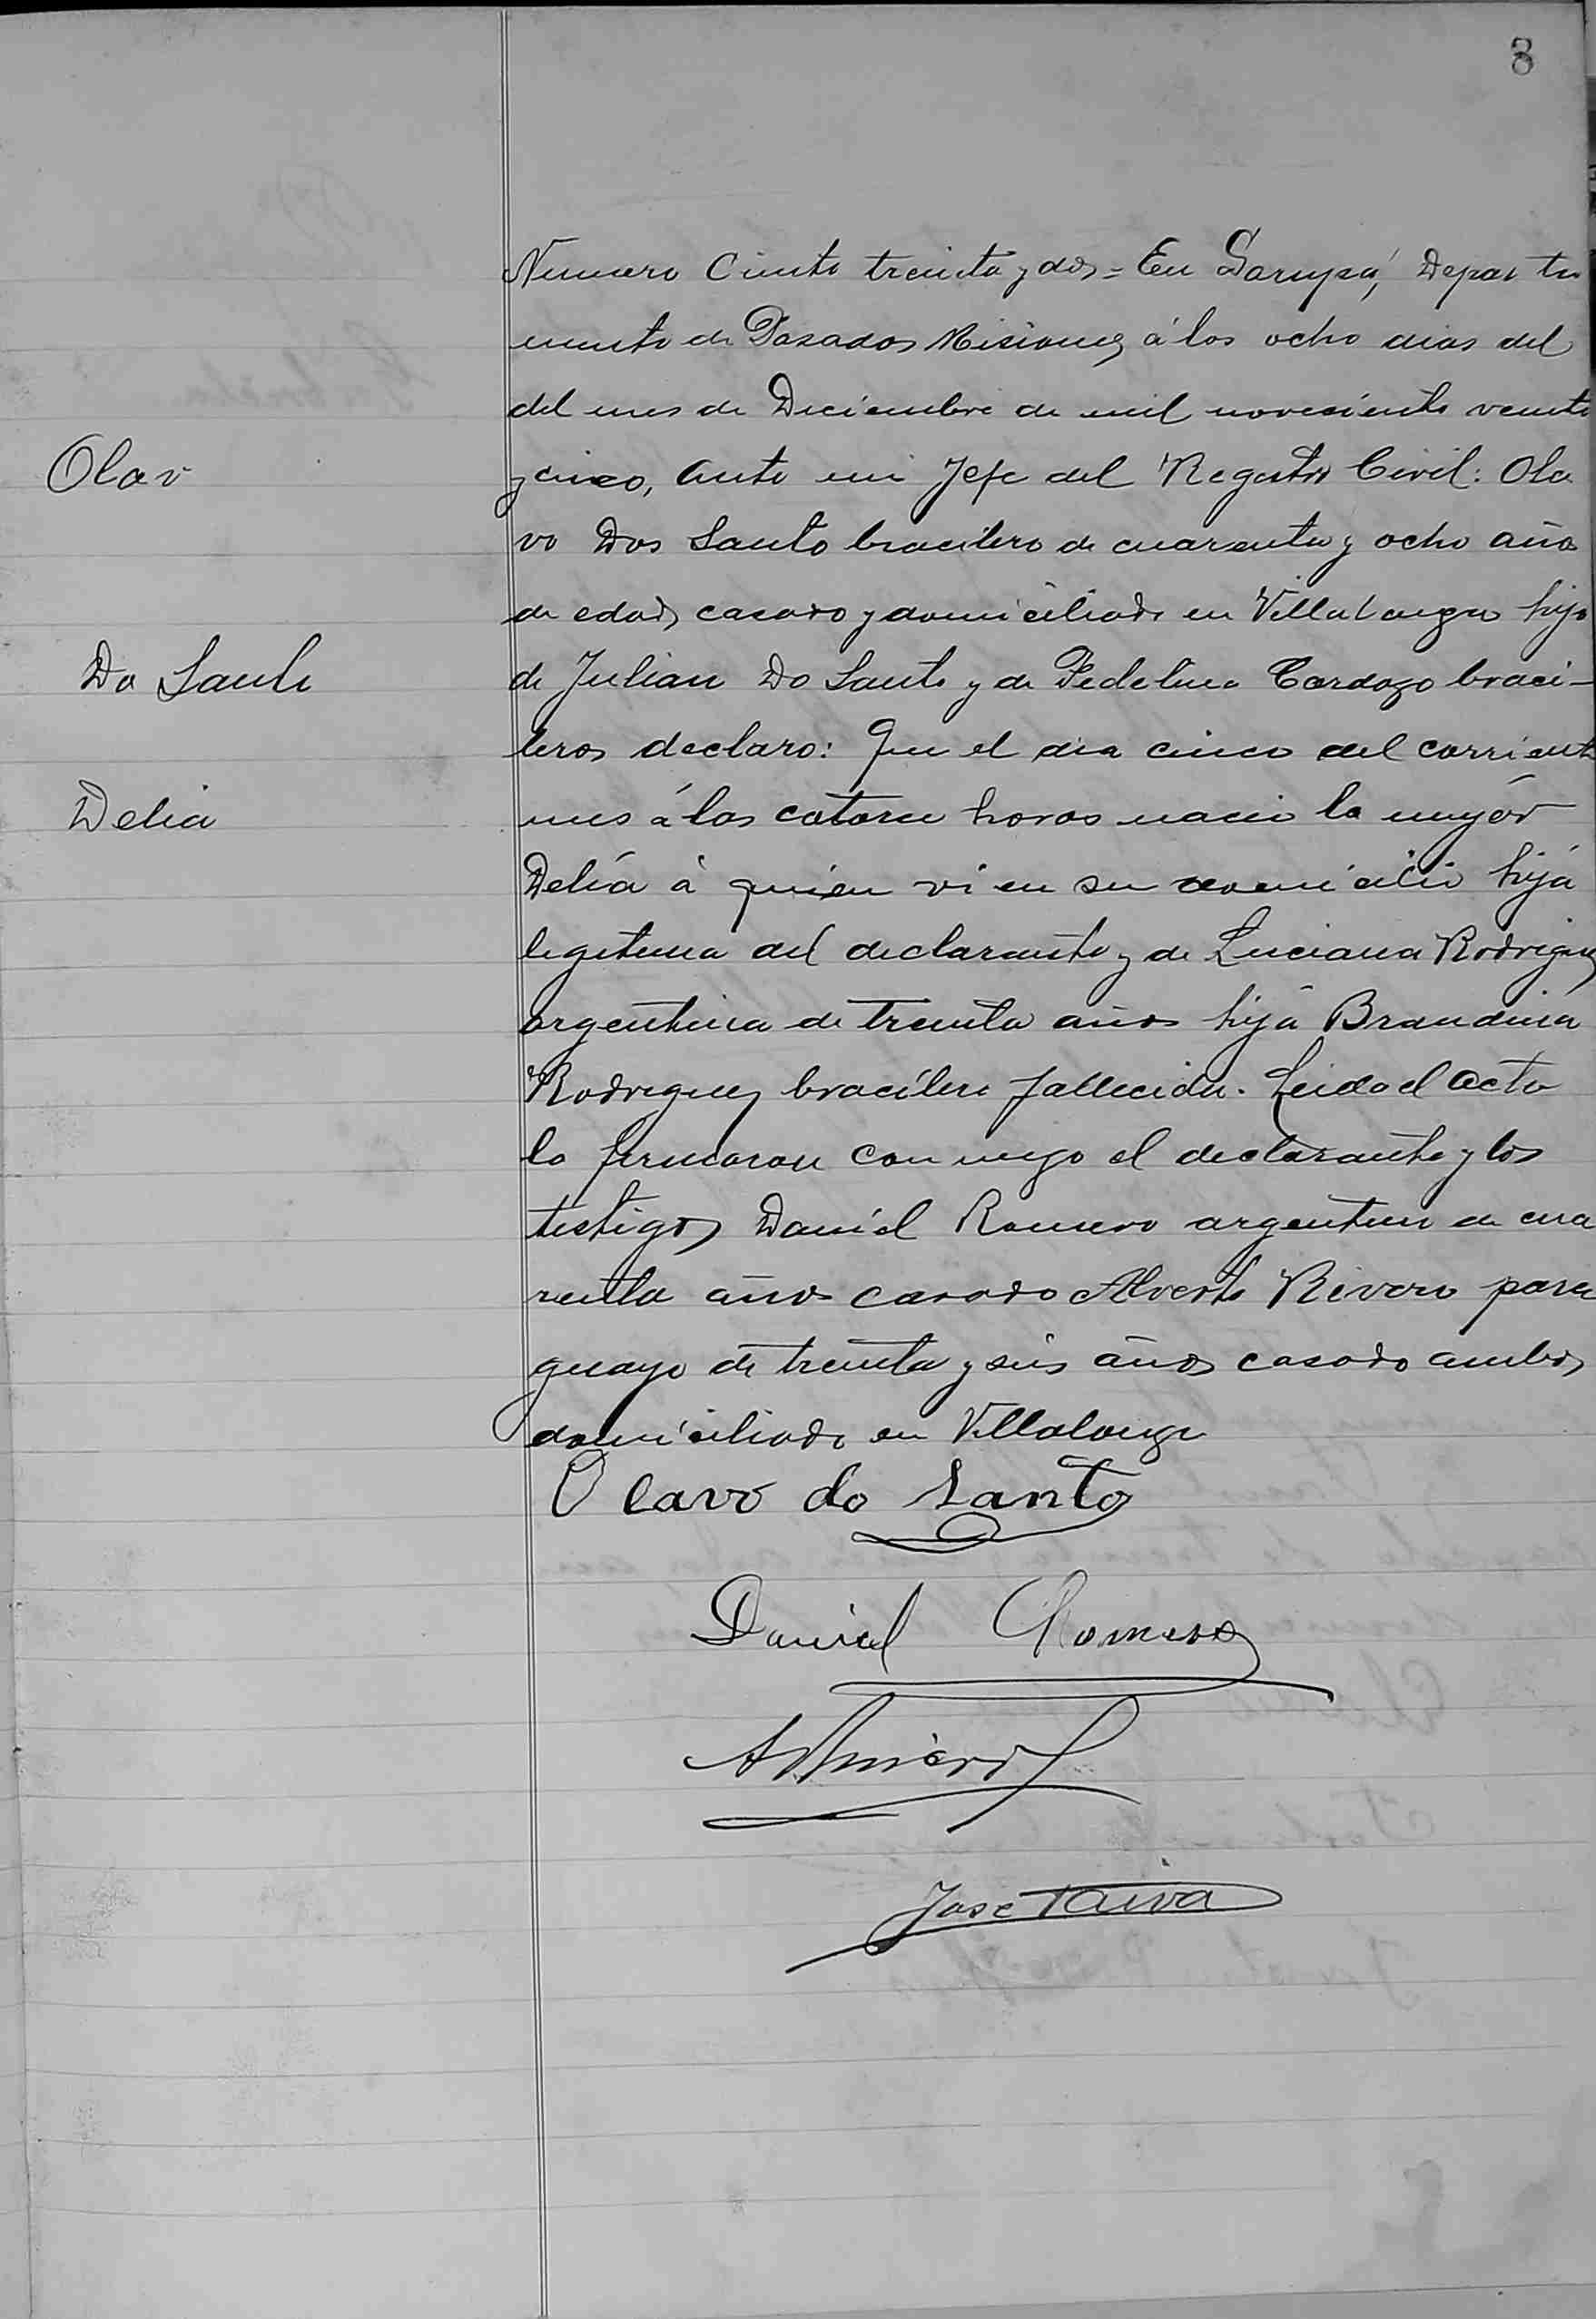 8
Numero Ciento treinta y dos = En Garupá, Departa
mento de Posadas Misiones á los ocho dias del
del mes de Diciembre de mil novesiento veinte
y cinco, ante mi Jefe del Registro Civil: Ola
vo Dos Santo bracilero de cuarenta y ocho años
de edad, casado y domiciliado en Villalonga hijo
de Julian Do Santo y de Fedelina Cardozo braci-
leros declaro: Que el dia cinco del corriente
mes á las catorce horas nacio la mujér
Delia á quien vi en su domicilio hija
legitima del declarante y de Luciana Rodriguez
argentina de treinta años hija Brandina
Rodriguez bracilera fallecida. Leida el acta
la firmaron con migo el declarante y los
testigos Daniel Romero argentino de cua
renta años casado Alverto Rivero para
guayo de treinta y seis años casado ambos
domiciliado en Villalonga
Olavo do Santo
Daniel Romero
Jose Paiva
Olav
Do Santo
Delia